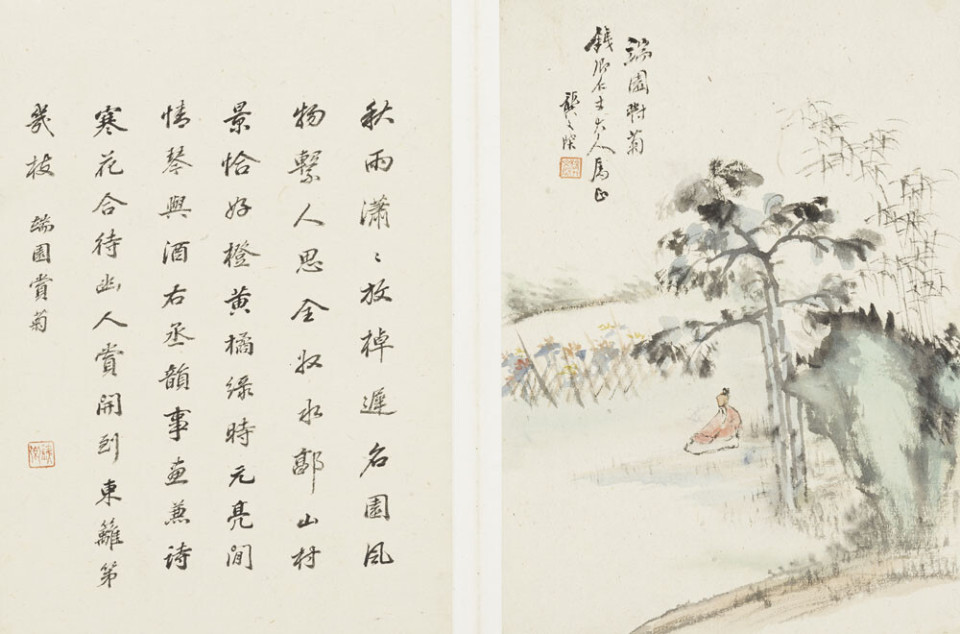 端園對菊
仁丈大人為正
秋雨瀟〻放棹遲名園風
物繫人思全收水郭山村
景恰好橙黃橘綠時元亮閒
情琴與酒右丞韻事畫兼詩
寒花合待幽人賞開到東籬第
幾枝
端園賞菊